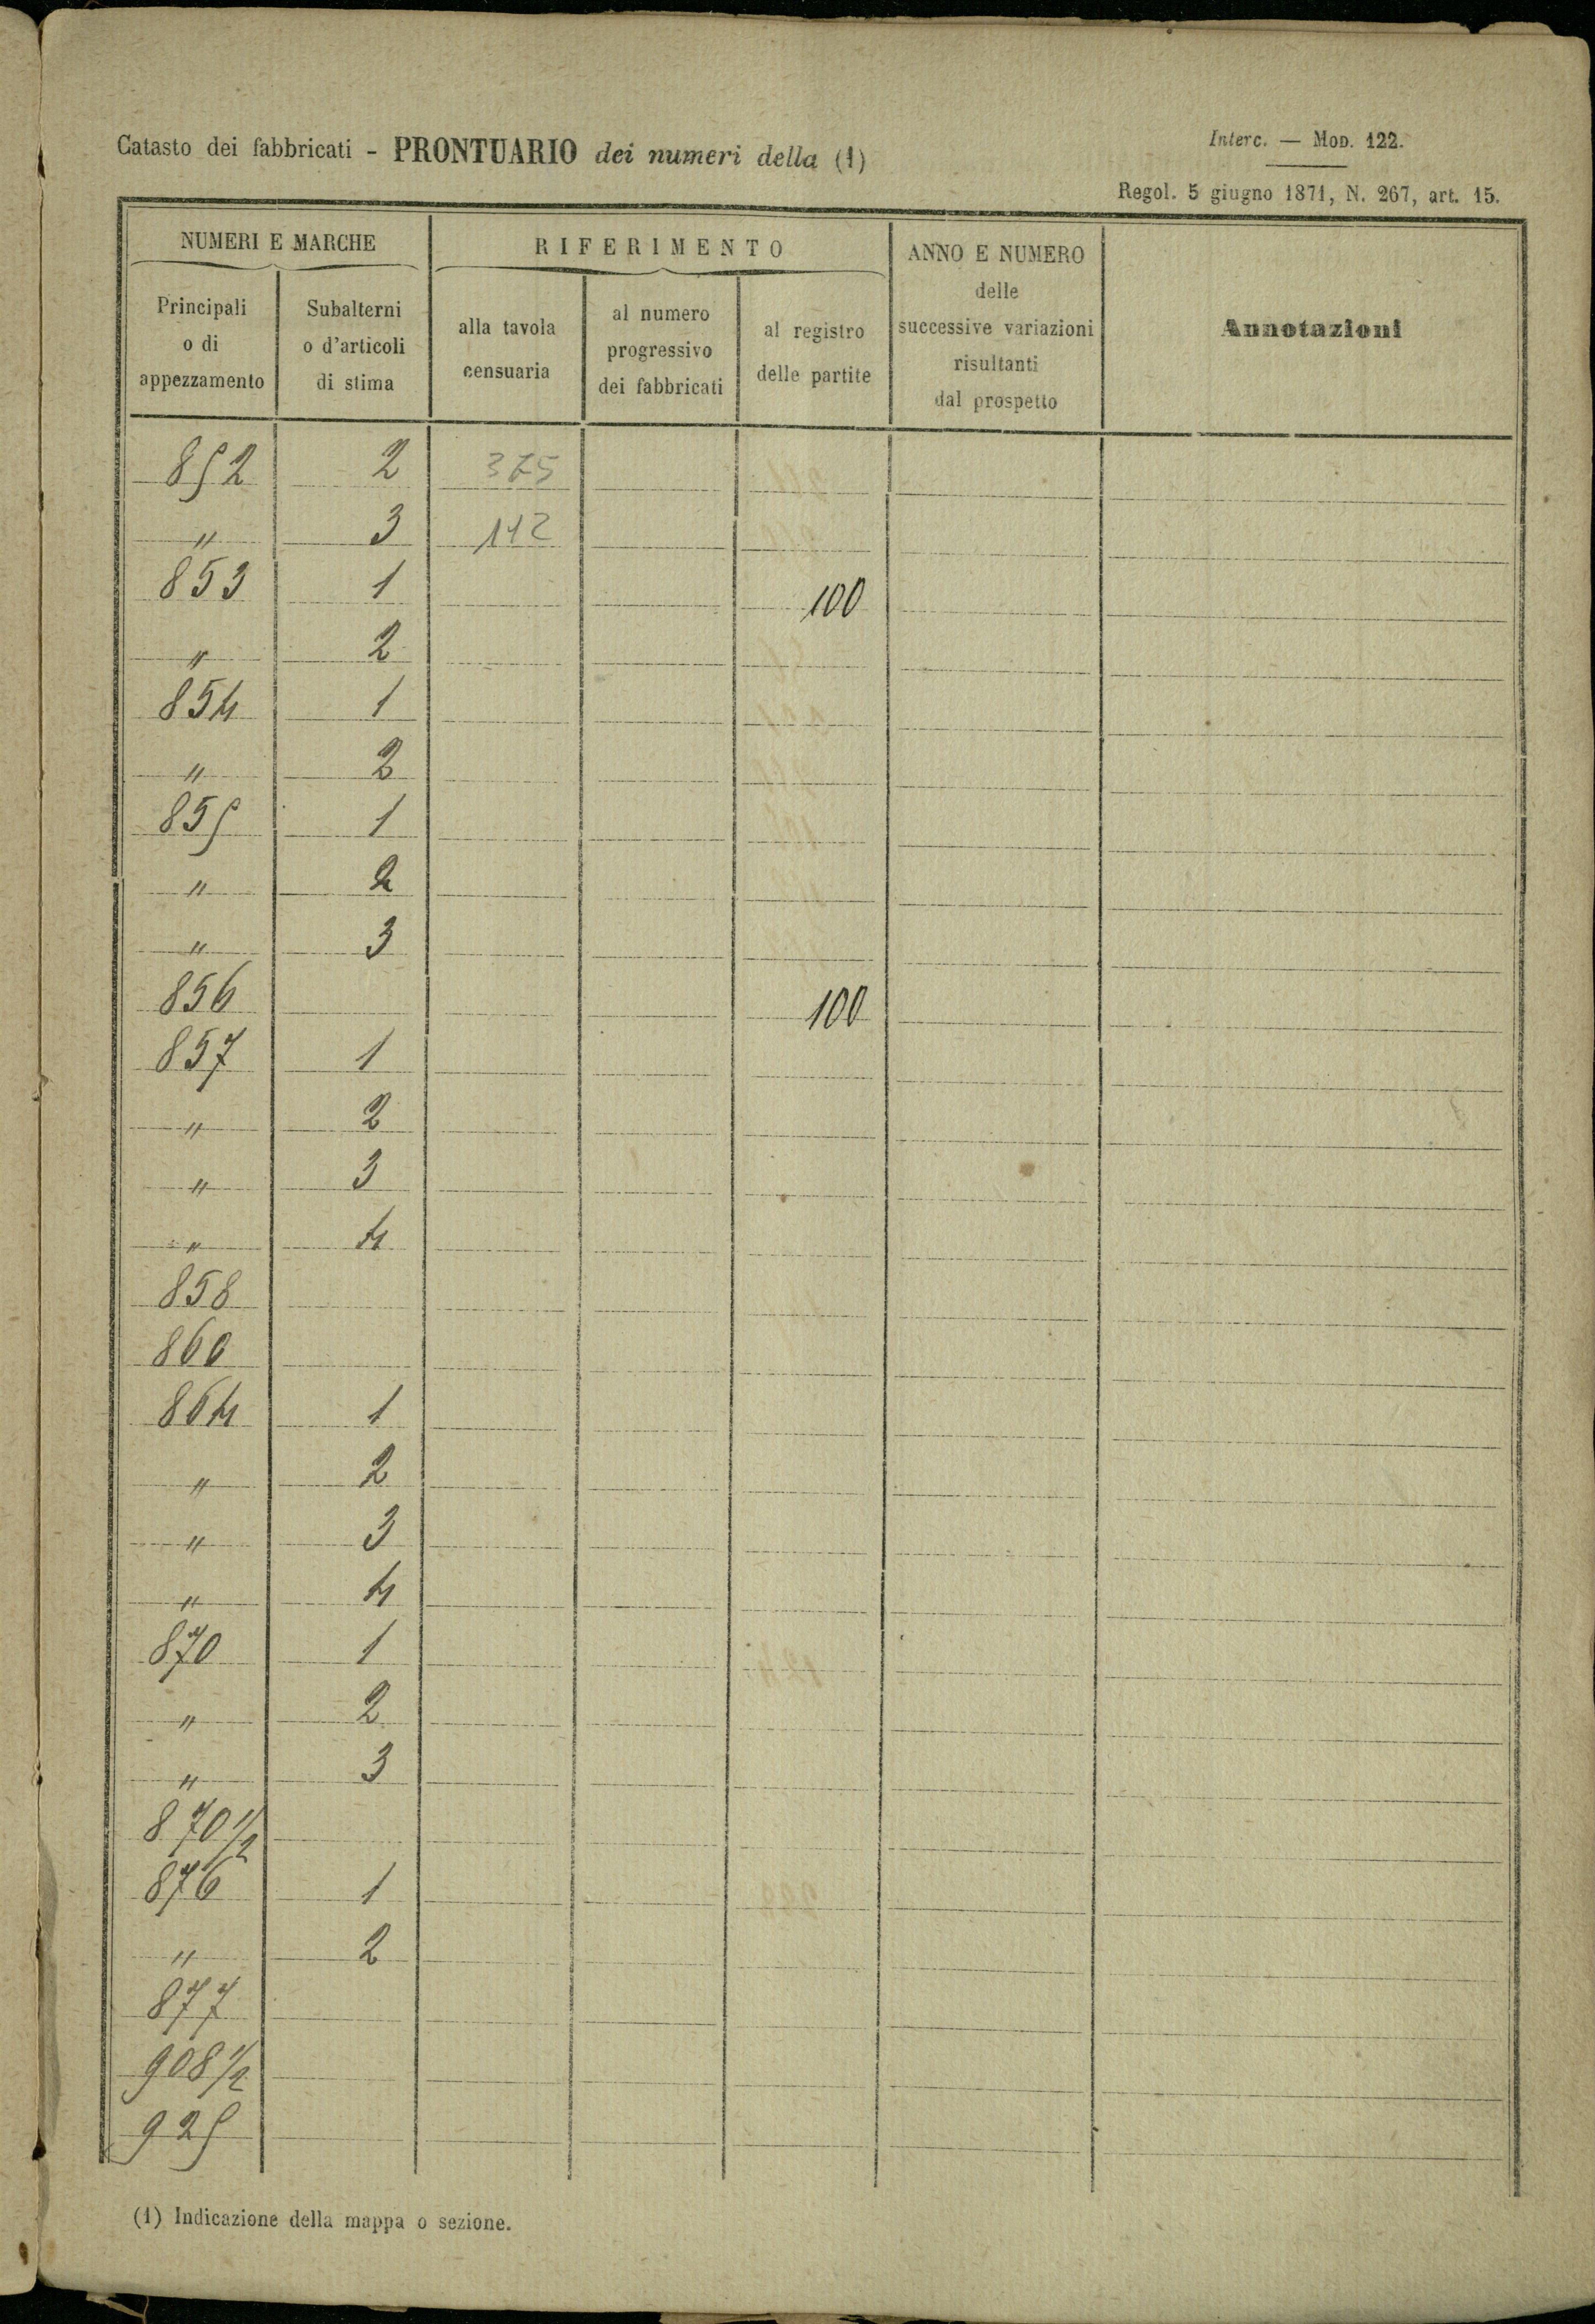 Catasto dei fabbricati - PRONTUARIO dei numeri della (1)
Interc. — Mod. 122.
Regol. 5 giugno 1871, N. 267, art. 15.
NUMERI E MARCHE
RIFERIMENTO
ANNO E NUMERO
delle
successive variazioni
risultanti
dal prospetto
Annotazioni
Principali
o di
appezzamento
Subalterni
o d'articoli
di stima
alla tavola
censuaria
al numero
progressivo
dei fabbricati
al registro
delle partite
852 2 375
" 3 142
853 1 100
" 2
854 1
" 2
855 1
" 2
" 3
856 100
857 1
" 2
" 3
" 4
858
860
864 1
" 2
" 3
" 4
870 1
" 2
" 3
870 1/2
876 1
" 2
877
908 1/2
925
(1) Indicazione della mappa o sezione.